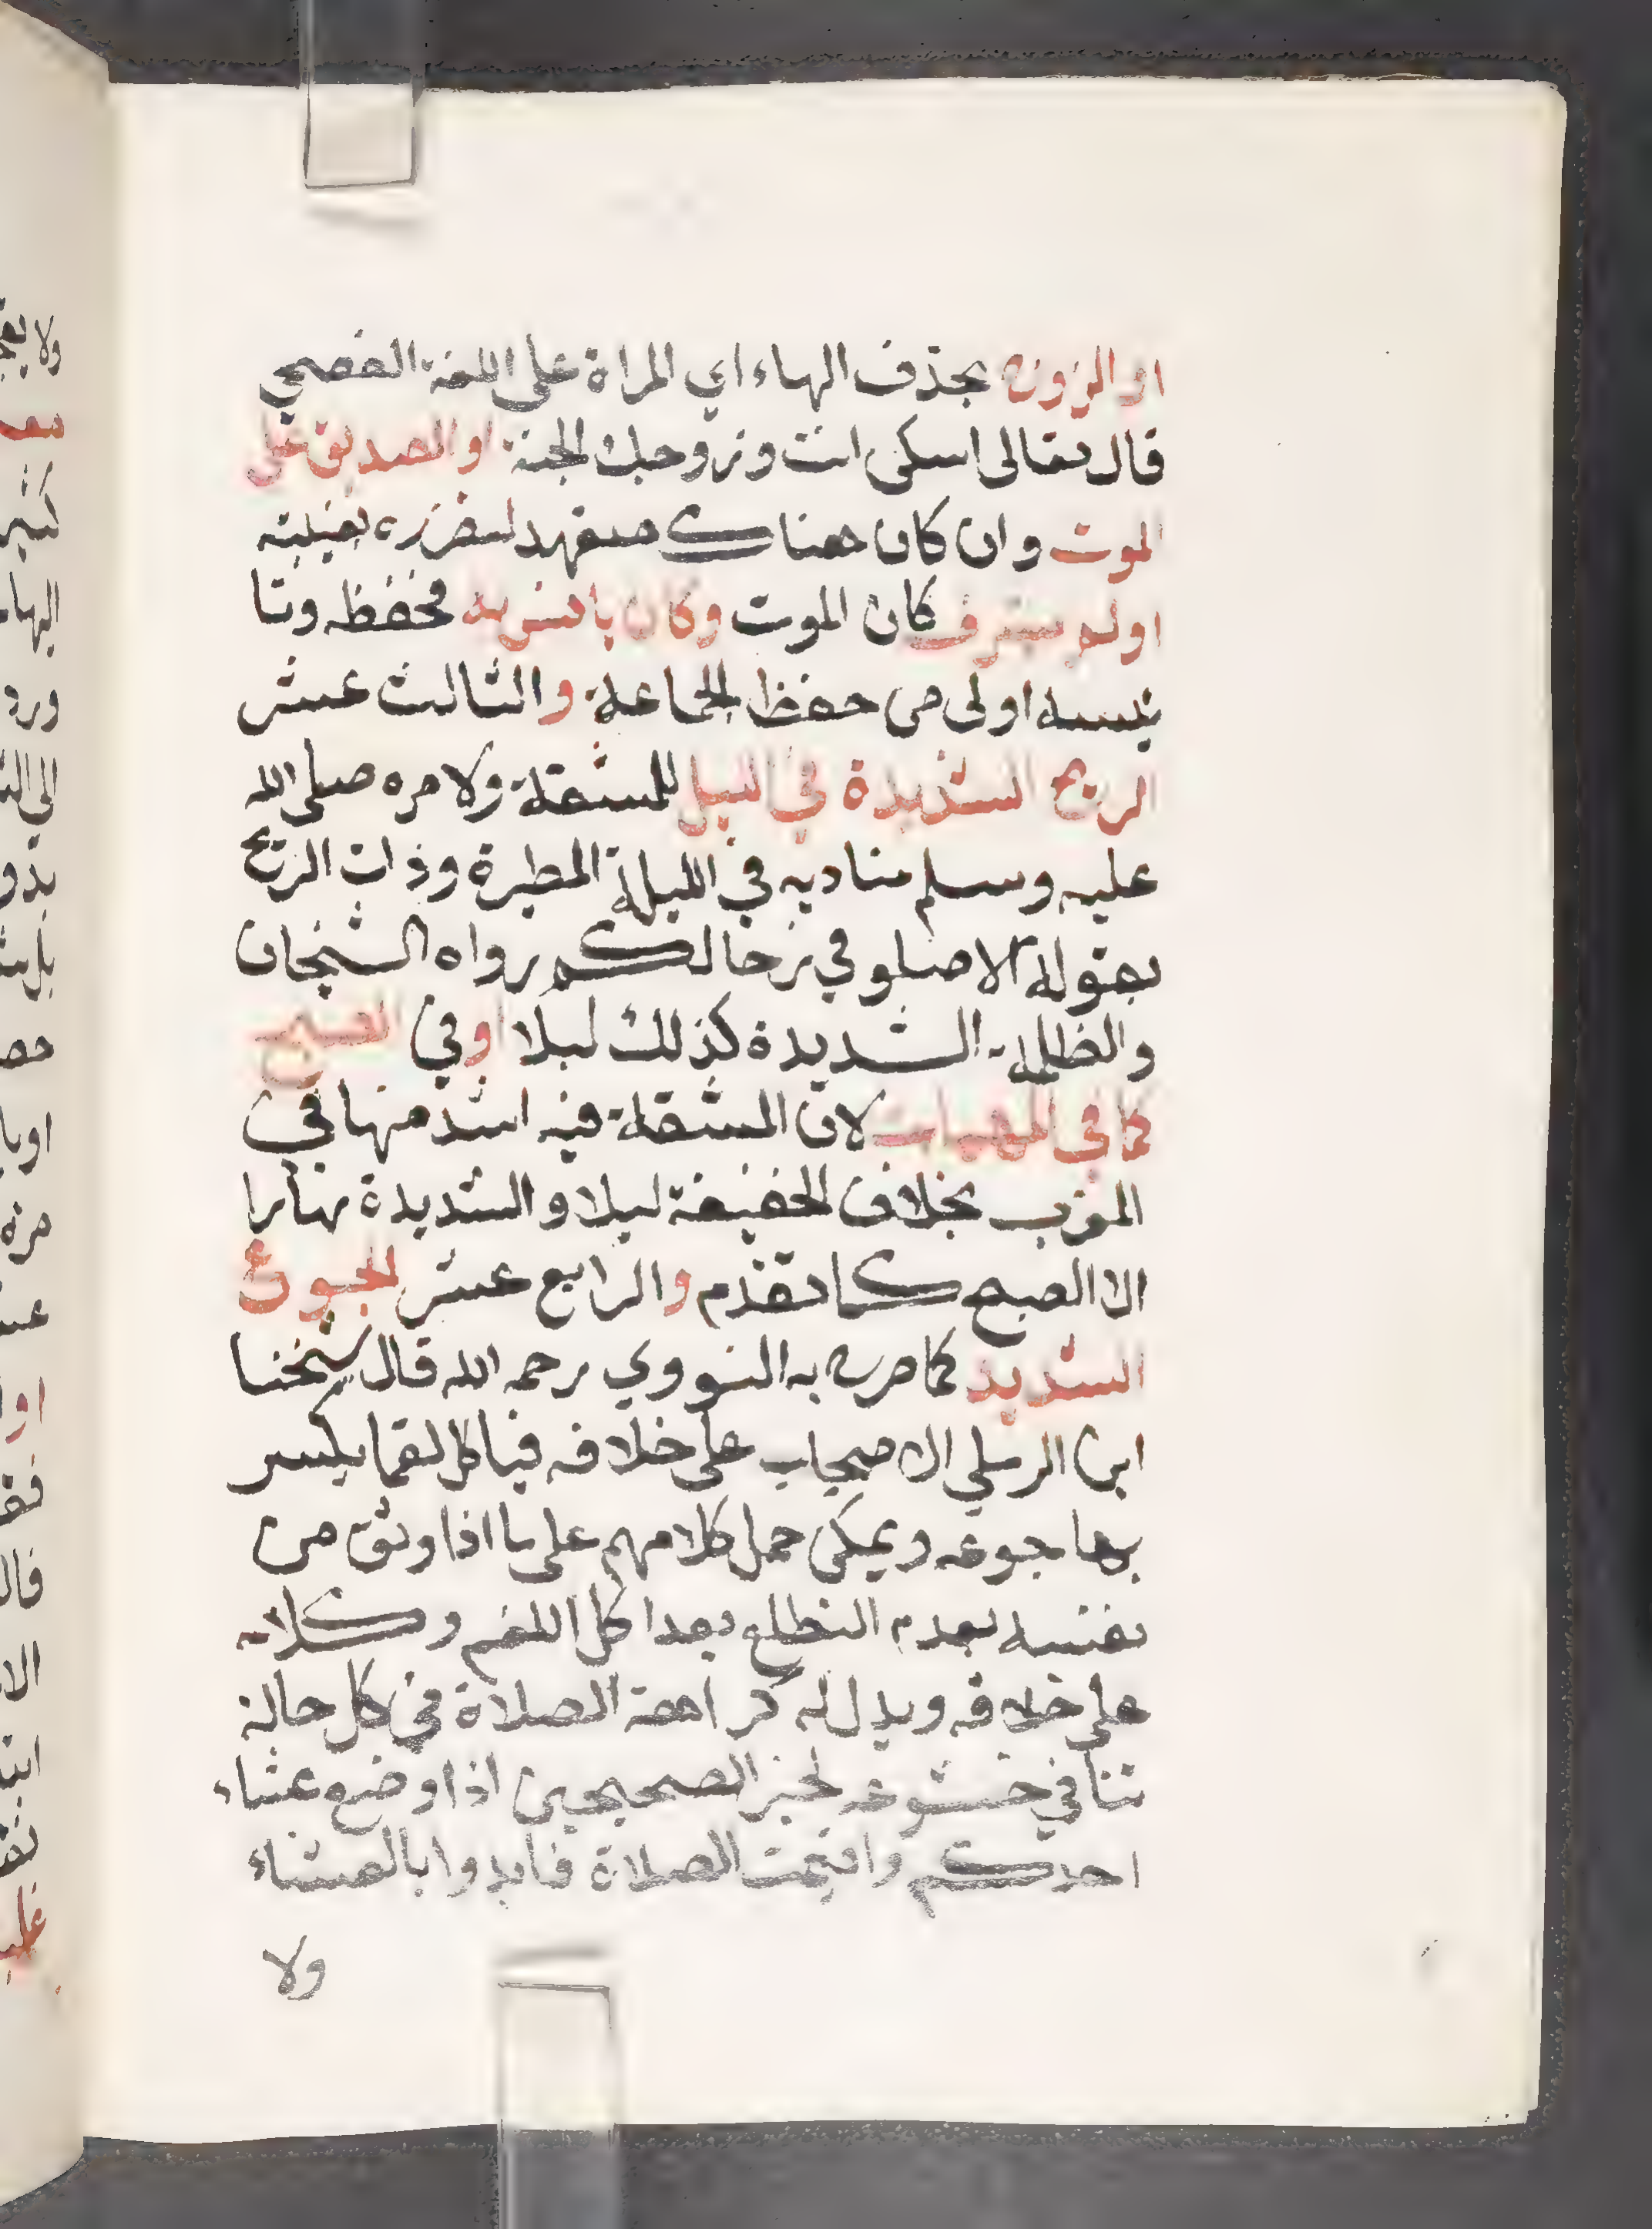 او الزوج بحذف الهاء اي المراة على اللغة الفصحي
قال تعالى اسكن انت وزوجك الجنة او الصديق على
الموت وان كان هناك متعهد لتضرره بغيبته
اولم يشرف كان الموت وكان يانس به فحفظه وتا
نيسه اولى من حفظ الجماعة والثالث عشر
الريح الشديدة في الليل للمشقة ولامره صلى الله
عليه وسلم مناديه في الليلة المطيرة وذات الريح
بقوله الا صلو في رحالكم رواه الشيخان
والظلمة الشديدة كذلك ليلا او في الصبح
كما في المهمات لان المشقة فيه اشد منها في
المغرب بخلاف الخفيفة ليلا والشديدة نهارا
الا الصبح كما تقدم والرابع عشر الجوع
الشديد كما صرح به النووي رحمه الله قال شيخنا
ابن الرملي الاصحاب على خلافه فياكل لقما يكسر
بها جوعه ويمكن حمل كلامهم على ما اذا وثق من
نفسه بعدم التطلع بعد اكل اللقم وكلامه
على خلافه ويدل له كراهة الصلاة في كل حالة
تنافي خشوعه لخبر الصحيحين اذا وضع عشاء
احدكم واقيمت الصلاة فابدوا بالعشاء
ولا